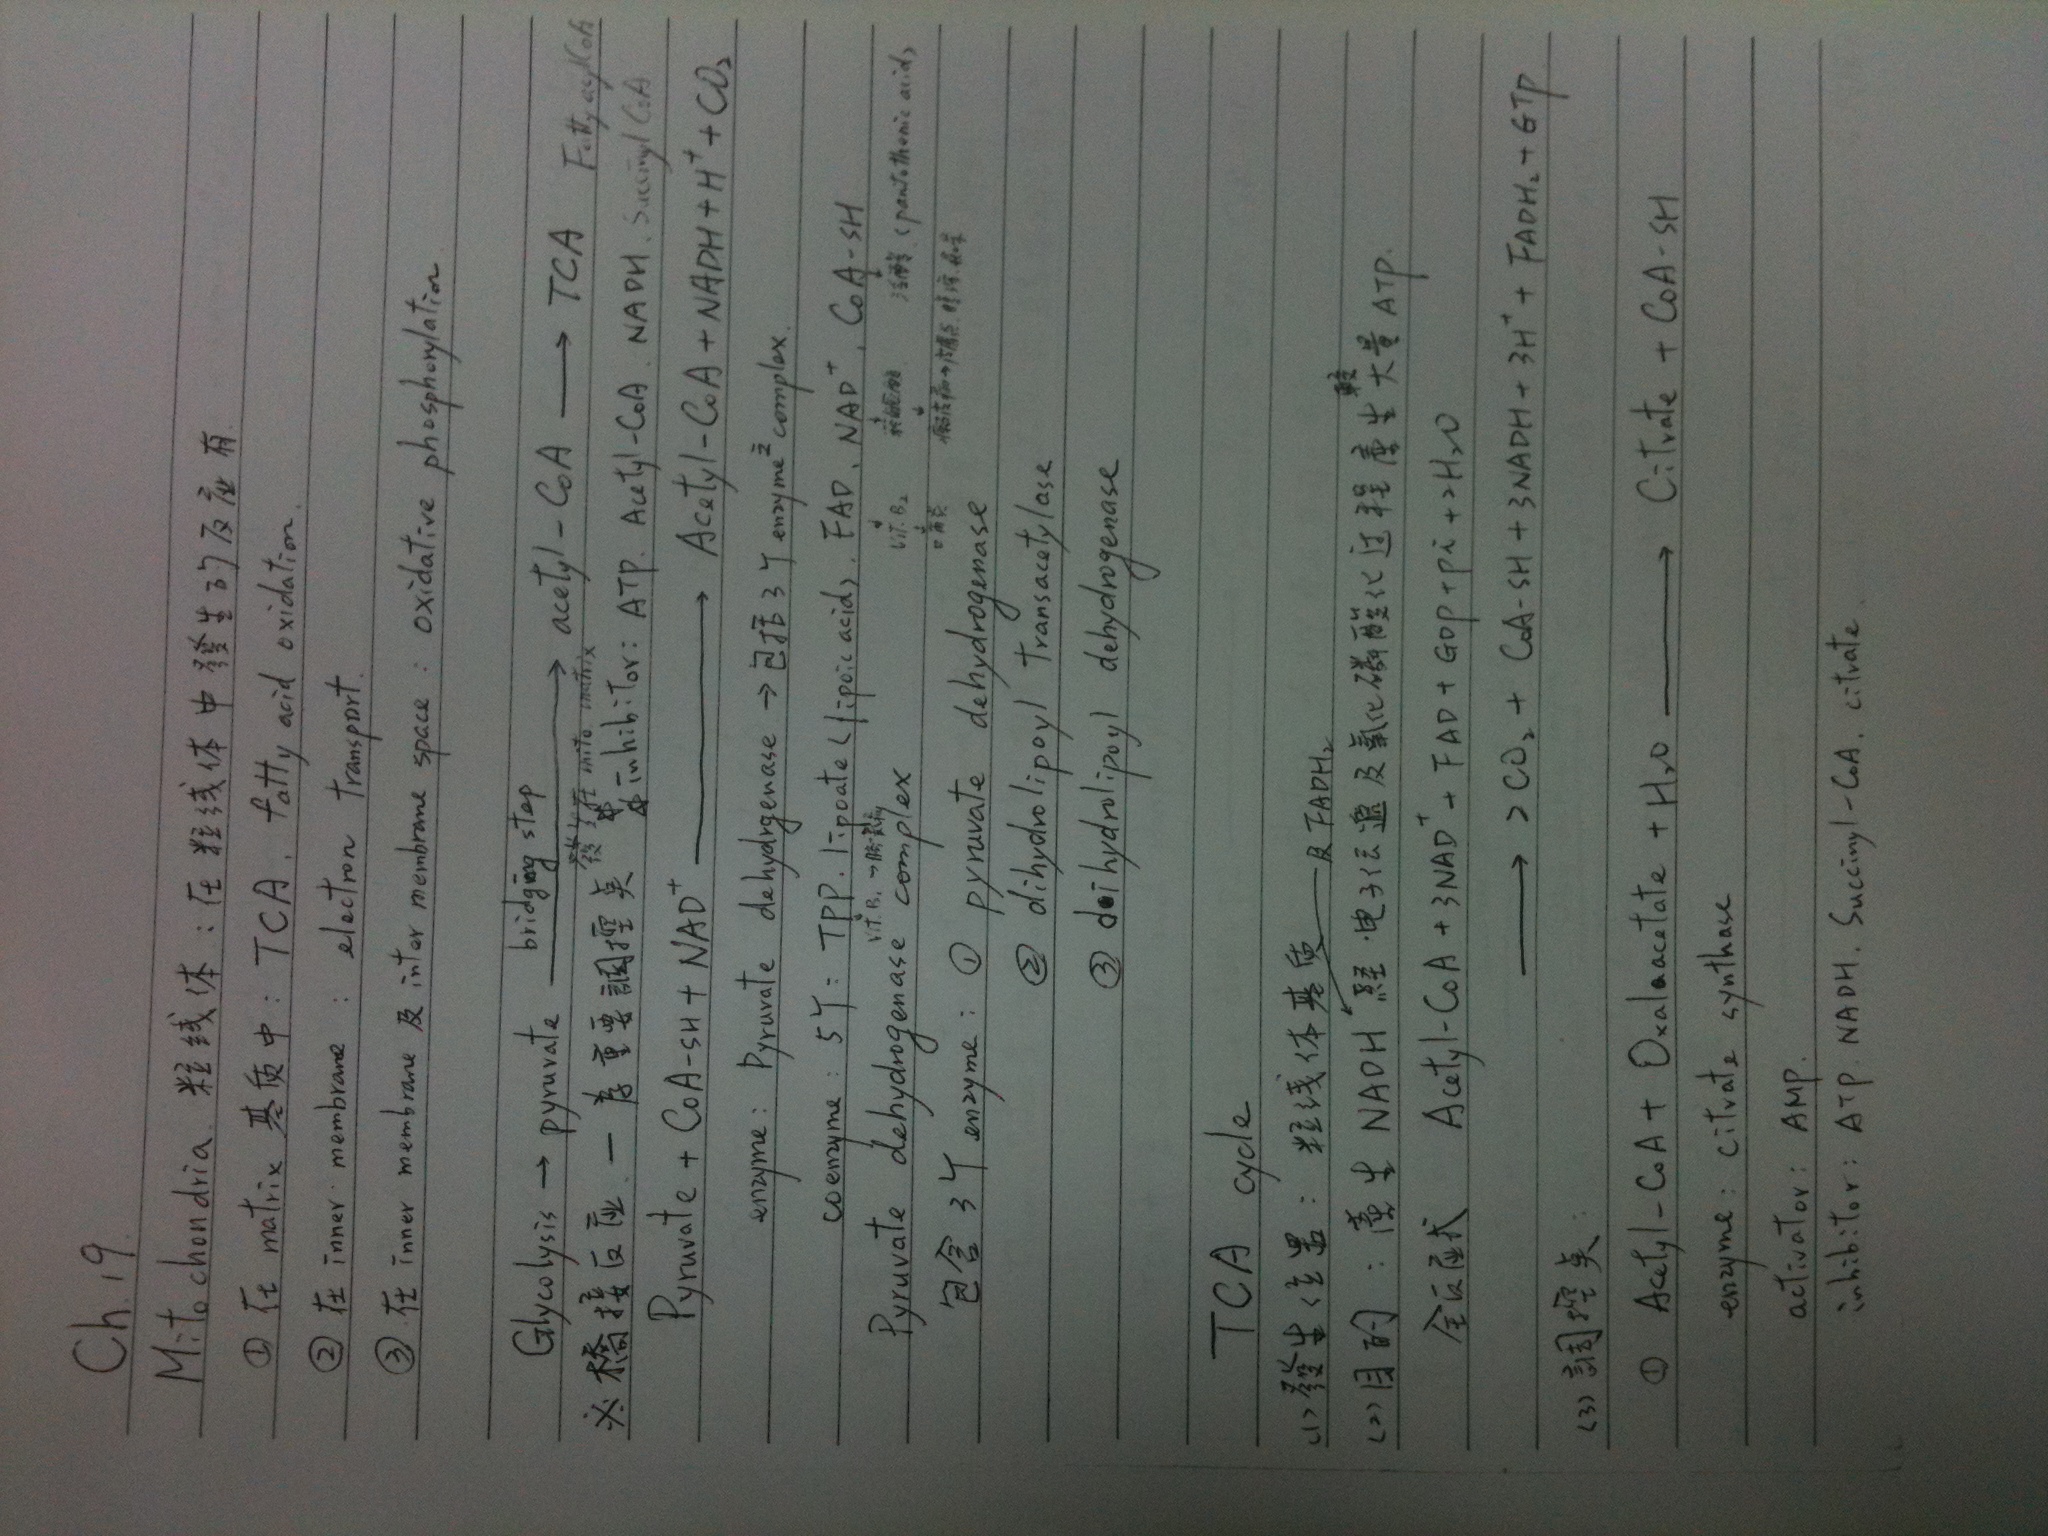 Ch.19.
Mitochondria 粒线体：在粒线体中發生的反应有
① 在 matrix 基质中：TCA. fatty acid oxidation.
② 在 inner membrane ： electron transport.
③ 在 inner membrane 及 inter membrane space : oxidative phosphorylation
bridging step
Glycolysis → pyruvate → acetyl-CoA → TCA Fatty acyl CoA
發生在 mito matrix
※ 橋接反应 一 為重要調控点 inhibitor: ATP. Acetyl-CoA. NADH. Succinyl CoA
Pyruvate + CoA-SH + NAD⁺ → Acetyl-CoA + NADH + H⁺ + CO₂
enzyme: Pyruvate dehydrgenase → 包括 3个 enzyme complex.
coenzyme: 5个: TPP. lipoate (lipoic acid). FAD. NAD⁺. CoA-SH
Vit. B₁ Vit. B₂ (pantothenic acid)
Pyruvate dehydrogenase complex
包含 3个 enzyme: ① pyruvate dehydrogenase
② dihydrolipoyl transacetylase
③ dihydrolipoyl dehydrogenase
TCA cycle
(1) 發生位置： 粒线体基质
及 FADH₂
(2) 目的 ： 產生 NADH 經电子传遞及氧化磷酸化过程產生較大量 ATP.
全反应式 Acetyl-CoA + 3NAD⁺ + FAD + GDP + pi + 2H₂O
→ 2CO₂ + CoA-SH + 3NADH + 3H⁺ + FADH₂ + GTP
(3) 調控点：
① Acetyl-CoA + Oxaloacetate + H₂O → Citrate + CoA-SH
enzyme: citrate synthase
activator: AMP.
inhibitor: ATP. NADH. Succinyl-CoA. citrate.